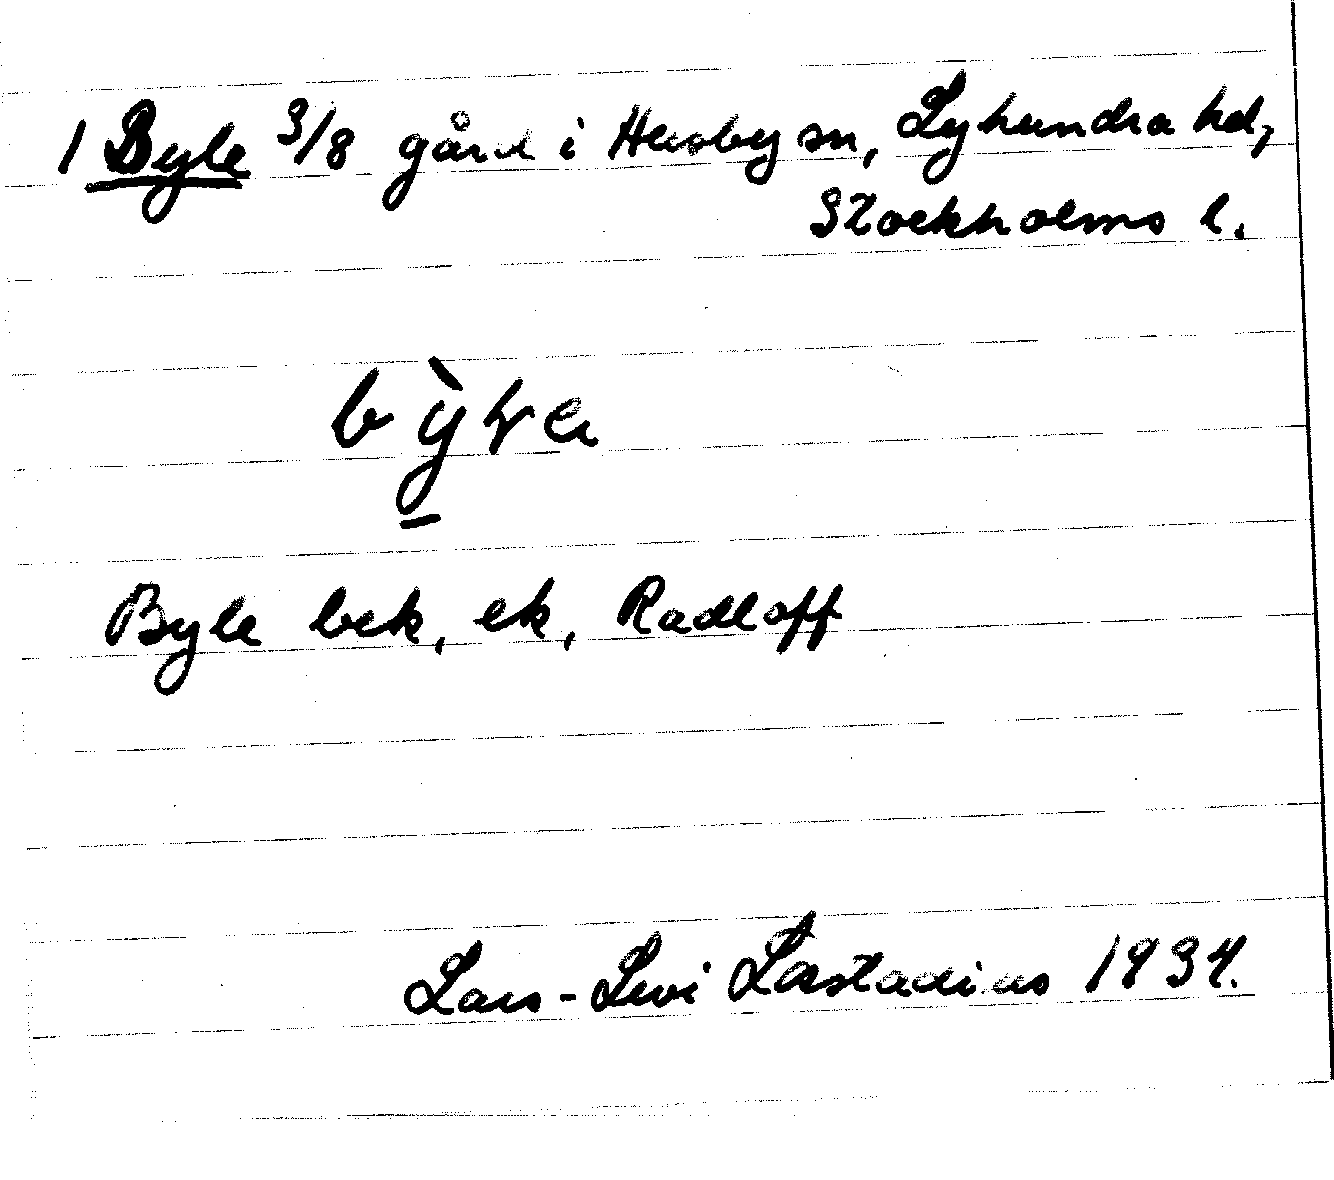 1 Byle 3/8 gård i Husby sn, Lyhundra hd,
Stockholms l.
Byle bek, ek, Radloff
Lars-Levi Læstadius 1934.